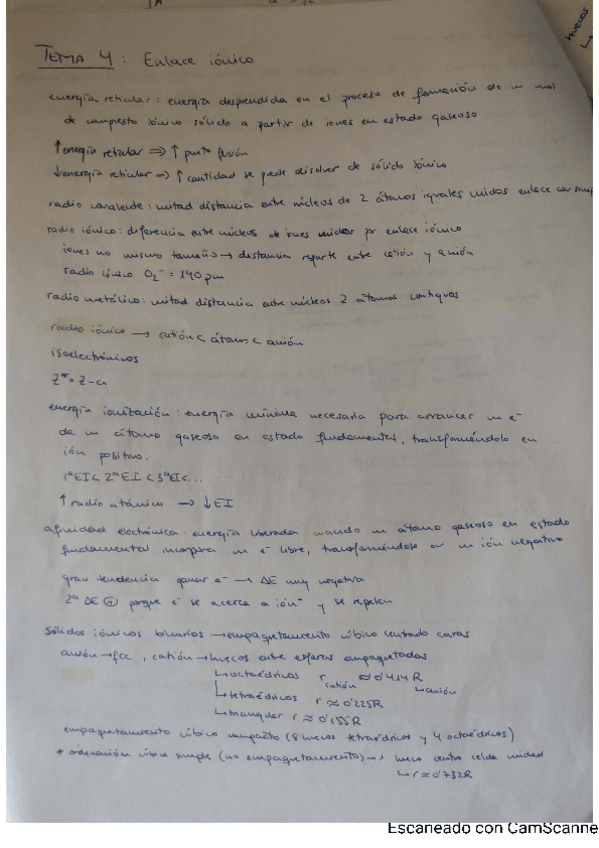 huecos
TEMA 4: Enlace iónico
energía reticular: energía desprendida en el proceso de formación de un mol
de compuesto iónico sólido a partir de iones en estado gaseoso
↑energía reticular ⇒ ↑ punto fusión
↓energía reticular ⇒ ↑ cantidad se puede disolver de sólido iónico
radio covalente: mitad distancia entre núcleos de 2 átomos iguales unidos enlace cov simp
radio iónico: diferencia entre núcleos de iones unidos por enlace iónico
iones no mismo tamaño → distancia reparte entre catión y anión
radio iónico O₂⁻ = 140 pm
radio metálico: mitad distancia entre núcleos 2 átomos contiguos
radio iónico → catión < átomo < anión
isoelectrónicos
Z* = Z - a
energía ionización: energía mínima necesaria para arrancar un e⁻
de un átomo gaseoso en estado fundamental, transformándolo en
ión positivo.
1ªEI < 2ªEI < 3ªEI < ...
↑ radio atómico → ↓EI
afinidad electrónica: energía liberada cuando un átomo gaseoso en estado
fundamental incorpora un e⁻ libre, transformándose en un ión negativo
gran tendencia ganar e⁻ → ΔE muy negativa
2ª ΔE ⊕ porque e⁻ se acerca a ión⁻ y se repelen
sólidos iónicos binarios → empaquetamiento cúbico centrado caras
anión → fcc, catión → huecos entre esferas empaquetadas
↳ octaédricos r catión ≈ 0'414 R ↳ anión
↳ tetraédricos r ≈ 0'225R
↳ triangular r ≈ 0'155R
empaquetamiento cúbico compacto (8 huecos tetraédricos y 4 octaédricos)
* ordenación cúbica simple (no empaquetamiento) → hueco centro celda unidad
↳ r ≈ 0'732R
Escaneado con CamScanne